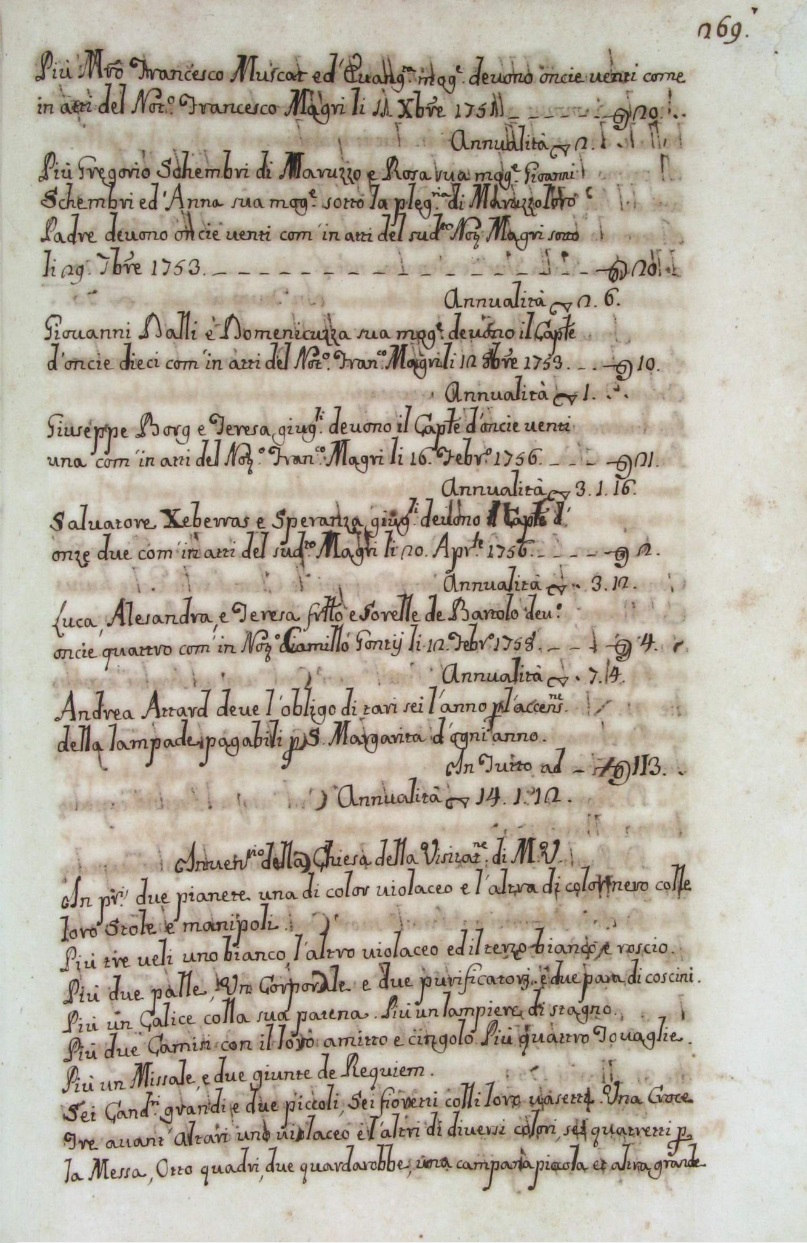 269.
Più Mro Francesco Muscat ed' Euangta mogե devono oncie venti come
in atti del Notro Francesco Magri li 11 Xbre 1751 20.
Annualità 2.
Più Gregorio Schembri di Maruzzo e Rosa sua moge Gioanni
Schembri ed' Anna sua moge sotto la plegria di Maruzzo loro
Padre devono oncie venti com' in atti del sudto Nor Magri sotto
li 29. 7bre 1753. 20.
Annualità 2. 6.
Giouanni Dalli e Domenicuzza sua moge deuono il Caple
d'oncie dieci com' in atti del Noto Frano Magri li 12 8bre 1753. 10.
Annualità 1.
Giuseppe Borg e Teresa giugli deuono il Caple d'oncie uenti
una com' in atti del Noro Frano Magri li 16. Febro 1756. 21.
Annualità 3. 1. 16.
Saluatore Xeberras e Speranza giugli deuono il Caple d'
onze due com' in atti del sudto Magri li 20. Aprle 1756. 2.
Annualità 3. 12.
Luca, Alesandra, e Teresa frtto e sorelle de Bartolo deuo
oncie quattro com' in Noro Camillo Gontij li 12. Febro 1758. 4.
Annualità 7. 4.
Andrea Attard deue l'obligo di tari sei l'anno p l'accenne
della lampade, pagabili p S. Margarita d'ogni anno.
In Tutto ad 113.
Annualità 14. 1. 12.
Inuenrio della Chiesa della Visitatne di M. V.
In pri due pianete una di color uiolaceo e l'altra di color nero colle
loro Stole e manipoli.
Più tre ueli uno bianco, l'altro uiolaceo ed il terzo bianco, e roscio.
Più due palle, Un Corporale e due purificatorj, e due para di coscini.
Più un Calice colla sua patena. Più un lampiere di stagno.
Più due Camiri con il loro amitto e cingolo Più quattro Touaglie.
Più un Missale, e due giunte de Requiem.
Sei Candri grandi e due piccoli, Sei fioretti colli loro uasetti. Una Croce
Tre auant' altari uno uiolaceo e l'altri di diuersi colori, sei quatretti p
la Messa, Otto quadri, due guardarobbe, una campana piccola et altra grande